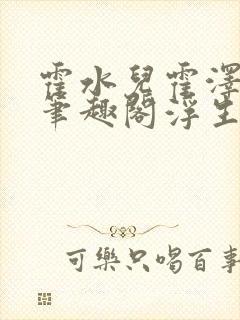 霍水兒霍澤
筆趣閣浮生
可樂只喝百事